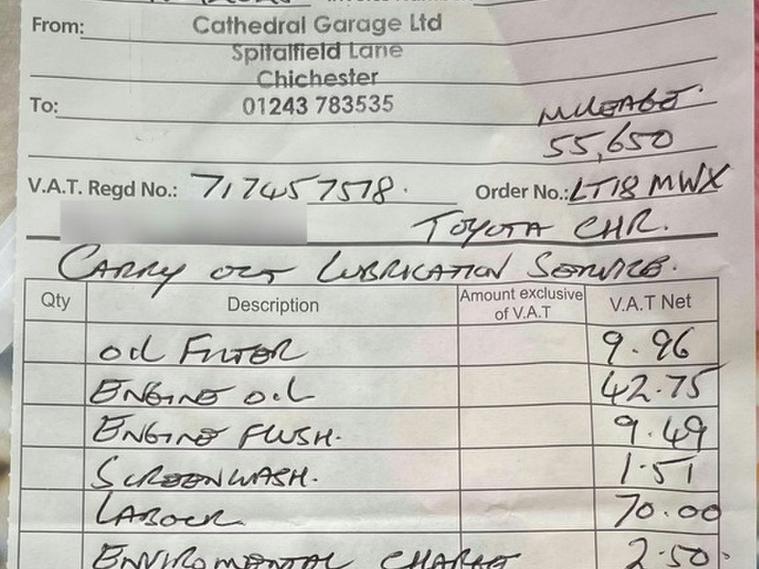 From:
Cathedral Garage Ltd
Spitalfield Lane
Chichester
To:
01243 783535
MILEAGE.
55,650
V.A.T. Regd No.: 717457578. Order No.: LT18 MWX
TOYOTA CHR.
CARRY OUT LUBRICATION SERVICE.
Qty Description Amount exclusive of V.A.T V.A.T Net
OIL FILTER 9.96
ENGINE OIL 42.75
ENGINE FLUSH. 9.49
SCREENWASH. 1.51
LABOUR 70.00
ENVIROMENTAL CHARGE 2.50.